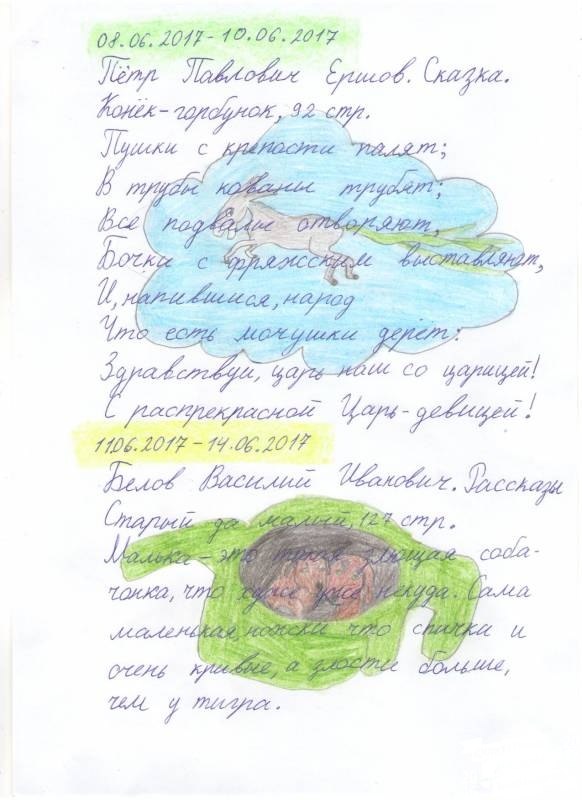 08.06.2017-10.06.2017
Пётр Павлович Ершов. Сказка.
Конёк-горбунок, 92 стр.
Пушки с крепости палят;
В трубы кованы трубят;
Все подвалы отворяют,
Бочки с фряжским выставляют,
И, напившися, народ
Что есть мочушки дерёт:
Здравствуй, царь наш со царицей!
С распрекрасной Царь-девицей!
11.06.2017-14.06.2017
Белов Василий Иванович. Рассказы
Старый да малый, 127 стр.
Малька - это такая злющая соба-
чонка, что хуже уже некуда. Сама
маленькая, ножки что спички и
очень кривые, а злости больше,
чем у тигра.